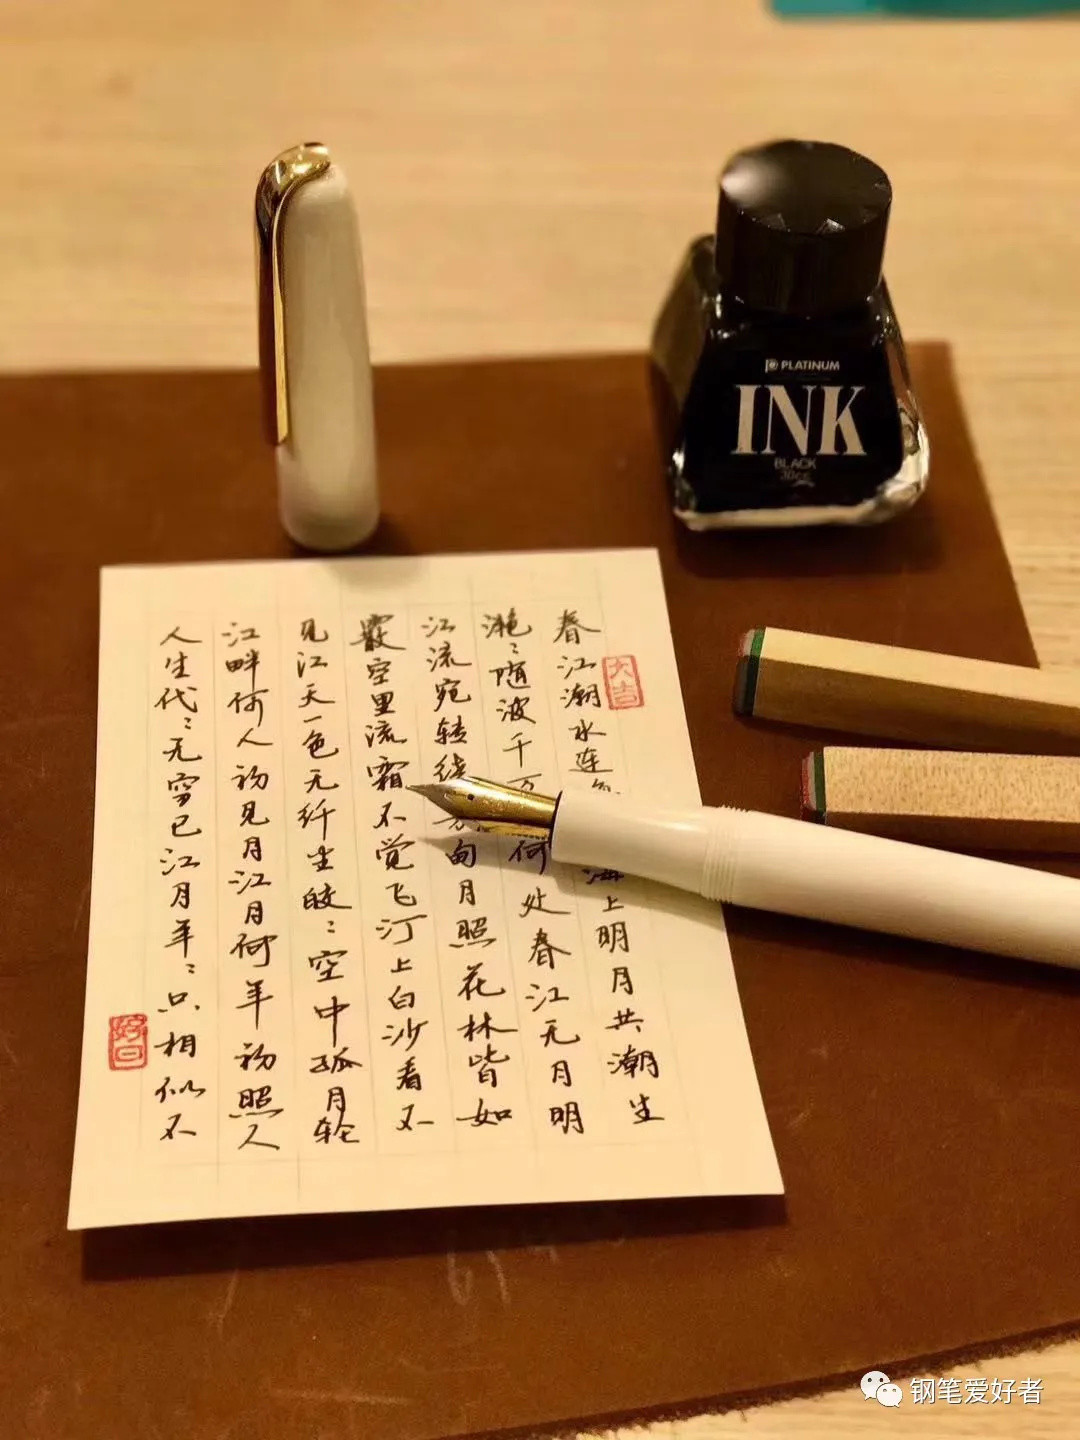 PLATINUM
INK
BLACK
30cc
大吉
春江潮水连海上明月共潮生
滟〻随波千万何处春江无月明
江流宛转绕甸月照花林皆如
霰空里流霜不觉飞汀上白沙看不
见江天一色无纤尘皎〻空中孤月轮
江畔何人初见月江月何年初照人
人生代〻无穷已江月年〻只相似不
好日
钢笔爱好者